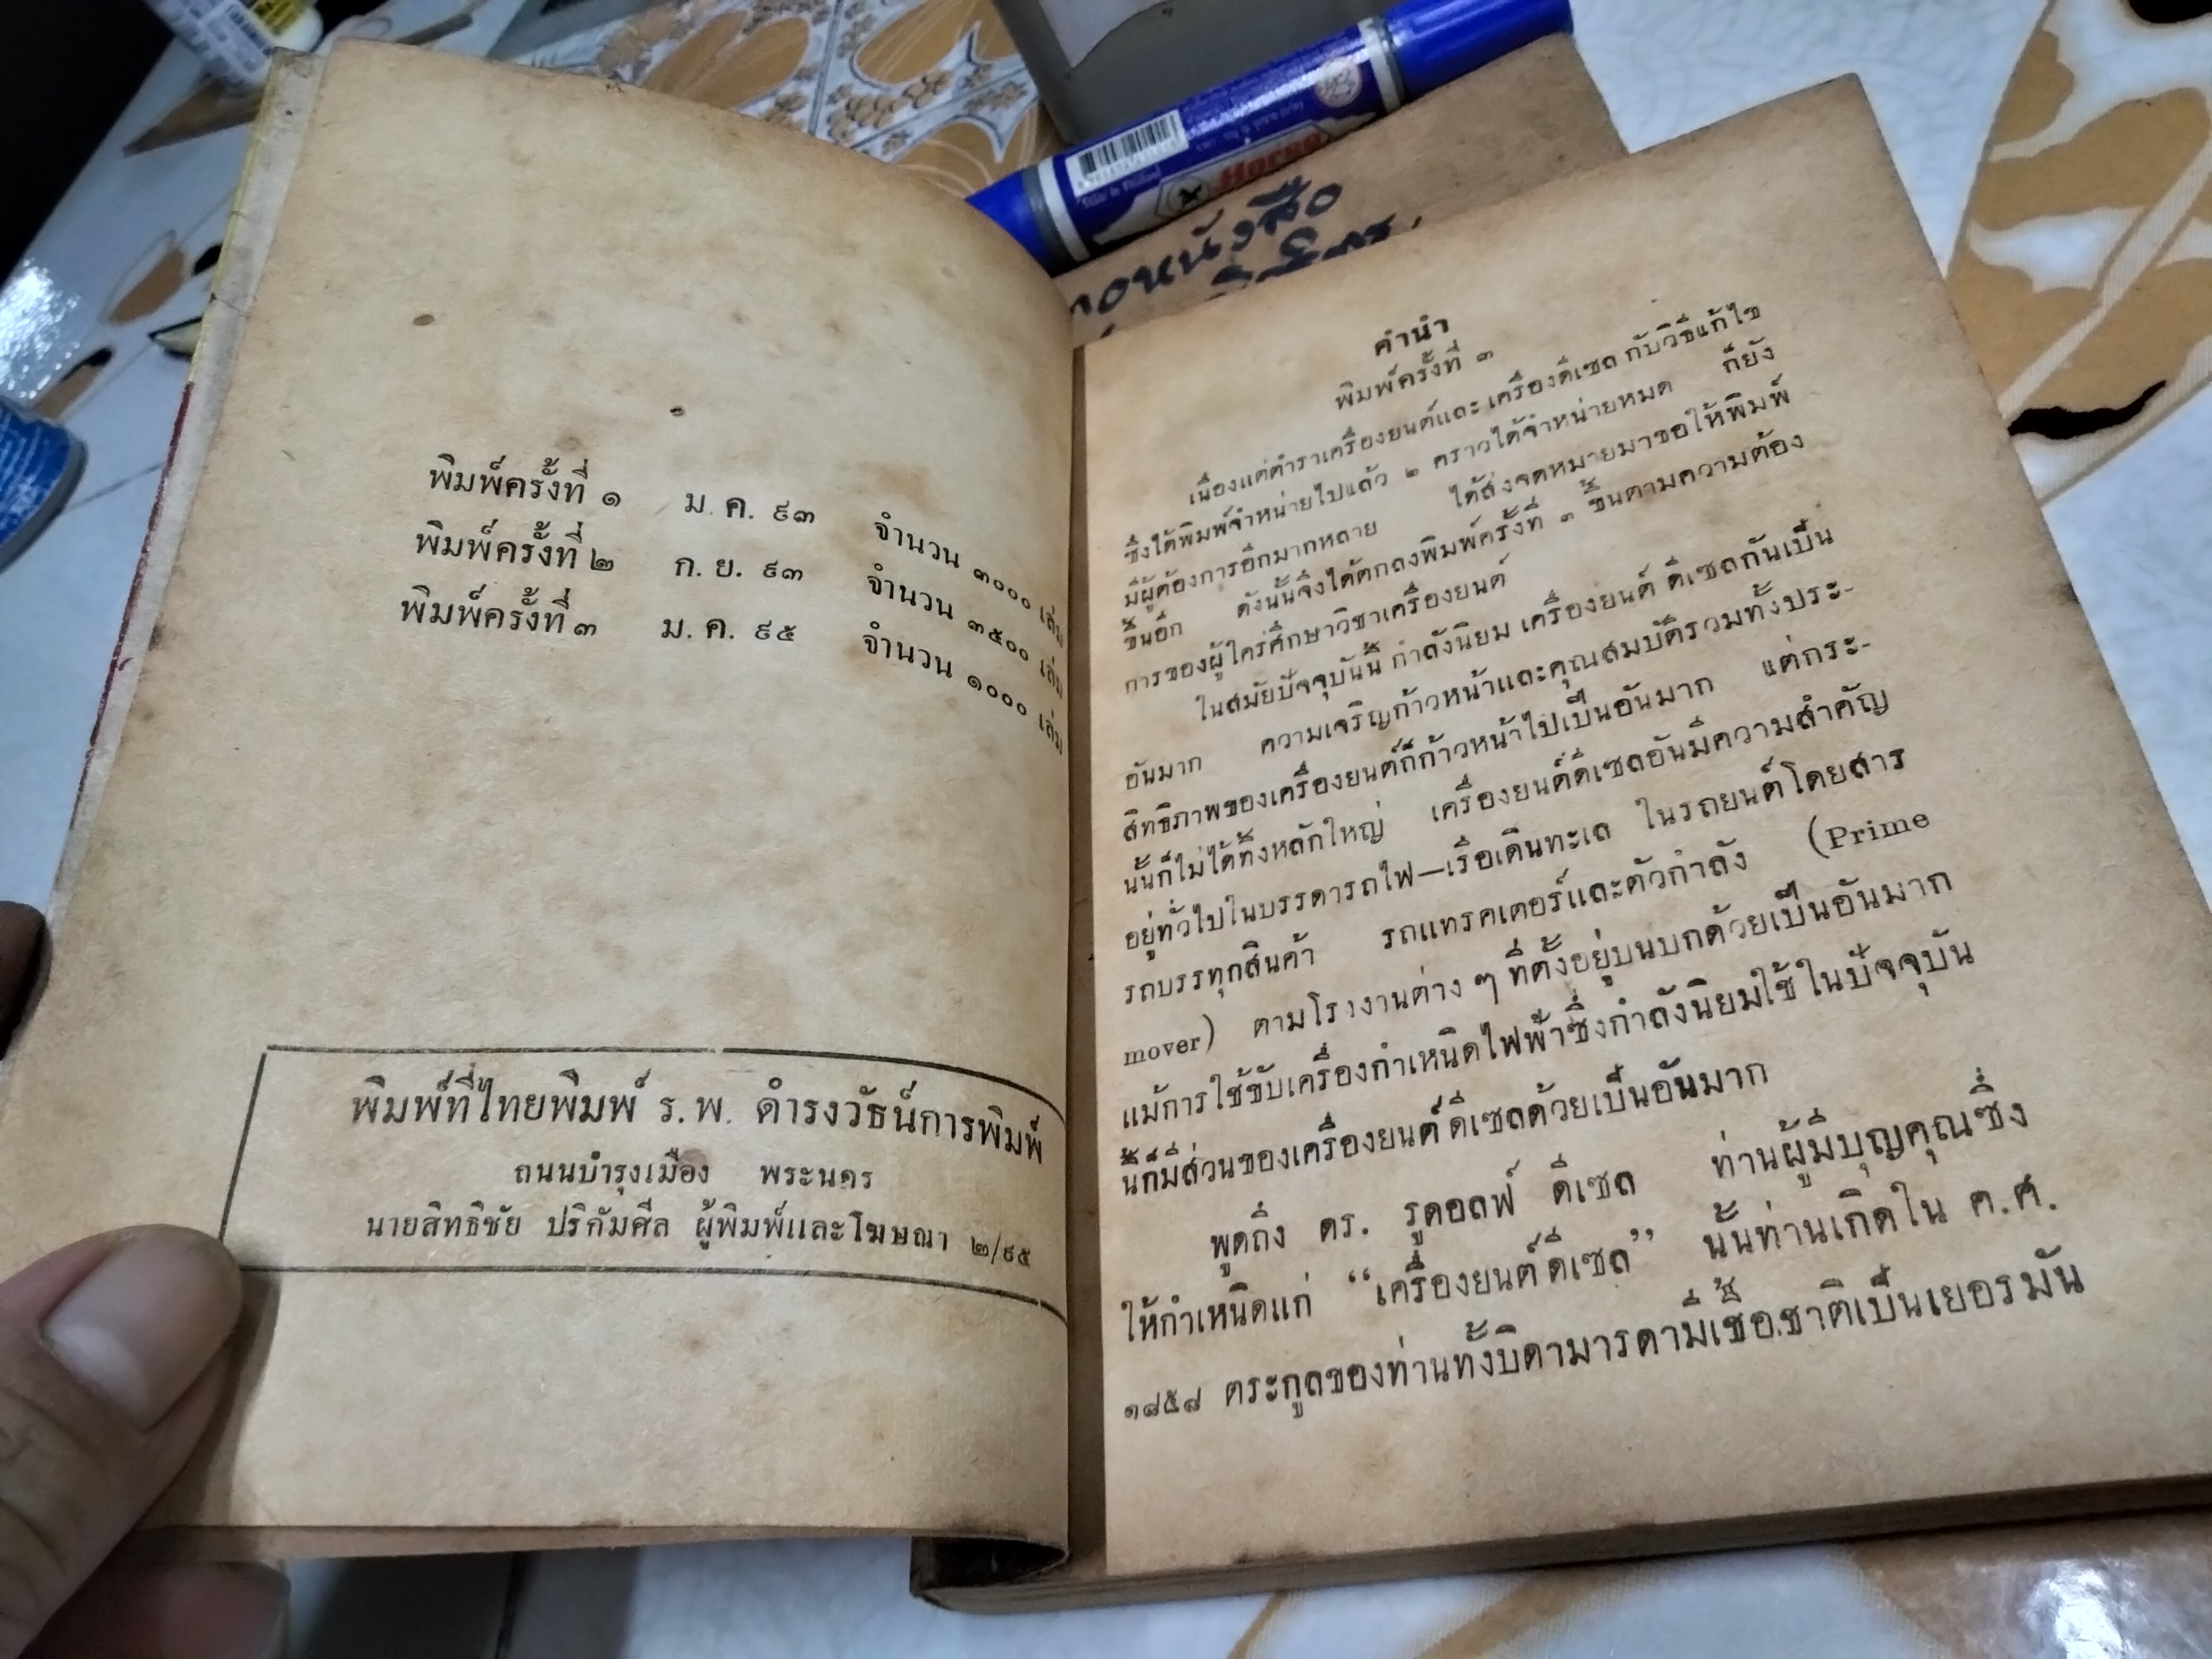 พิมพ์ครั้งที่ ๑ ม.ค. ๙๓ จำนวน ๓๐๐๐ เล่ม
พิมพ์ครั้งที่ ๒ ก.ย. ๙๓ จำนวน ๓๕๐๐ เล่ม
พิมพ์ครั้งที่ ๓ ม.ค. ๙๕ จำนวน ๑๐๐๐ เล่ม
พิมพ์ที่ไทยพิมพ์ ร.พ. ดำรงวัธน์การพิมพ์
ถนนบำรุงเมือง พระนคร
นายสิทธิชัย ปริกัมศีล ผู้พิมพ์และโฆษณา ๒/๙๕
Horse
Made in Thailand
หนังสือ
คำนำ
พิมพ์ครั้งที่ ๓
เนื่องแต่ตำราเครื่องยนต์และ เครื่องดีเซล กับวิธีแก้ไข
ซึ่งได้พิมพ์จำหน่ายไปแล้ว ๒ คราวได้จำหน่ายหมด ก็ยัง
มีผู้ต้องการอีกมากหลาย ได้ส่งจดหมายมาขอให้พิมพ์
ขึ้นอีก ดังนั้นจึงได้ตกลงพิมพ์ครั้งที่ ๓ ขึ้นตามความต้อง
การของผู้ใคร่ศึกษาวิชาเครื่องยนต์
ในสมัยปัจจุบันนี้ กำลังนิยม เครื่องยนต์ ดีเซลกันเป็น
อันมาก ความเจริญก้าวหน้าและคุณสมบัติรวมทั้งประ-
สิทธิภาพของเครื่องยนต์ก็ก้าวหน้าไปเป็นอันมาก แต่กระ-
นั้นก็ไม่ได้ทิ้งหลักใหญ่ เครื่องยนต์ดีเซลอันมีความสำคัญ
อยู่ทั่วไปในบรรดารถไฟ—เรือเดินทะเล ในรถยนต์โดยสาร
รถบรรทุกสินค้า รถแทรคเตอร์และตัวกำลัง (Prime
mover) ตามโรงงานต่าง ๆ ที่ตั้งอยู่บนบกด้วยเป็นอันมาก
แม้การใช้ขับเครื่องกำเหนิดไฟฟ้าซึ่งกำลังนิยมใช้ในปัจจุบัน
นี้ก็มีส่วนของเครื่องยนต์ดีเซลด้วยเป็นอันมาก
พูดถึง ดร. รูดอลฟ์ ดีเซล ท่านผู้มีบุญคุณซึ่ง
ให้กำเหนิดแก่ “เครื่องยนต์ดีเซล” นั้นท่านเกิดใน ค.ศ.
๑๘๕๘ ตระกูลของท่านทั้งบิดามารดามีเชื้อชาติเป็นเยอรมัน